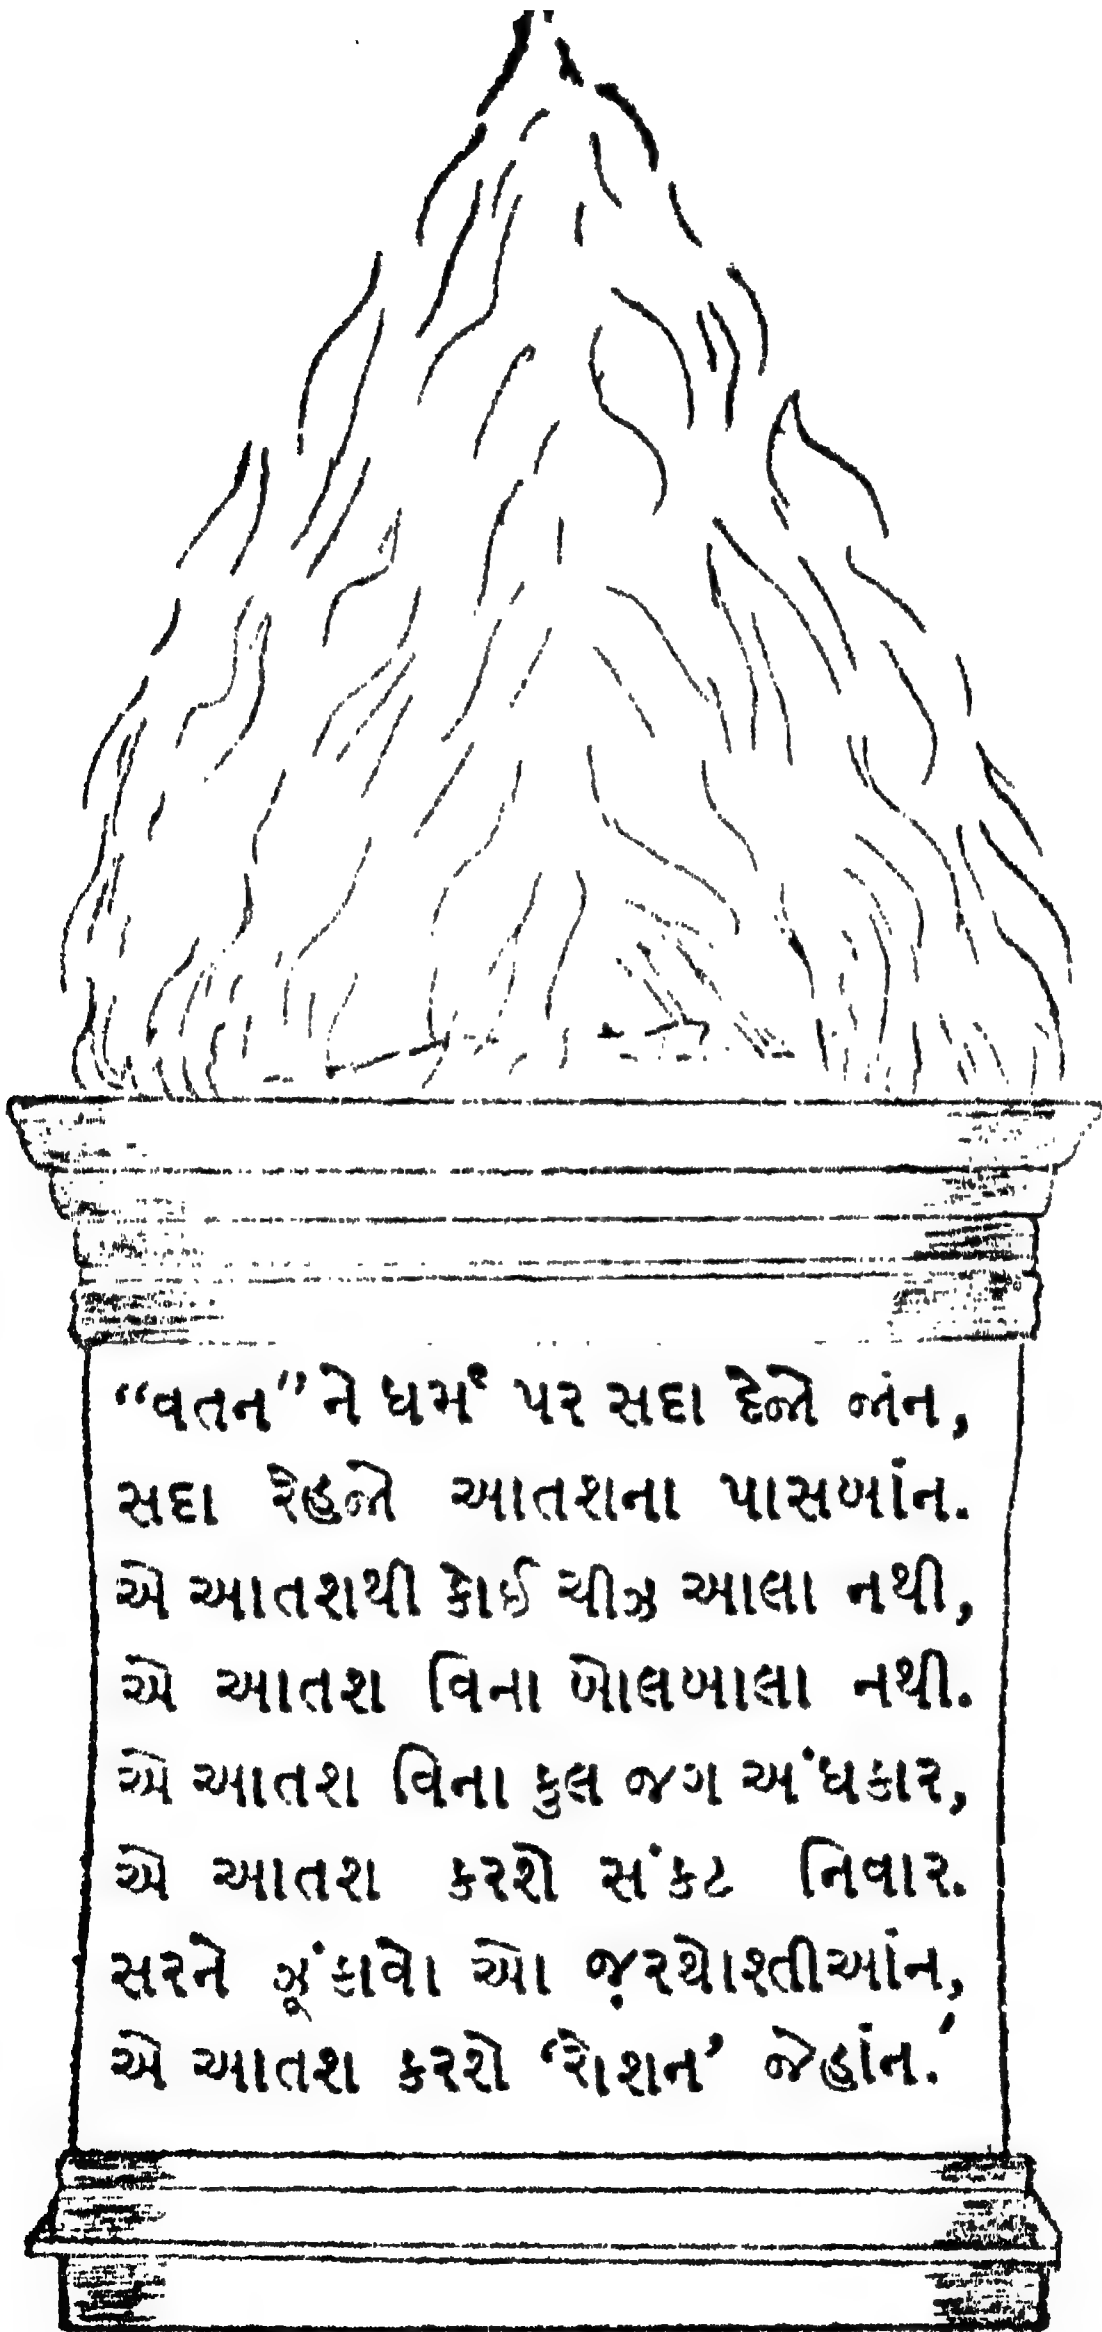 “વતન” ને ધર્મ પર સદા દેજો જાંન,
સદા રેહજો આતશના પાસબાંન.
એ આતશથી કોઈ ચીઝ આલા નથી,
એ આતશ વિના બોલબાલા નથી.
એ આતશ વિના કુલ જગ અંધકાર,
એ આતશ કરશે સંકટ નિવાર.
સરને ઝૂંકાવો ઓ જ઼રથોશ્તીઆંન,
એ આતશ કરશે ‘રોશન’ જેહાંન.’